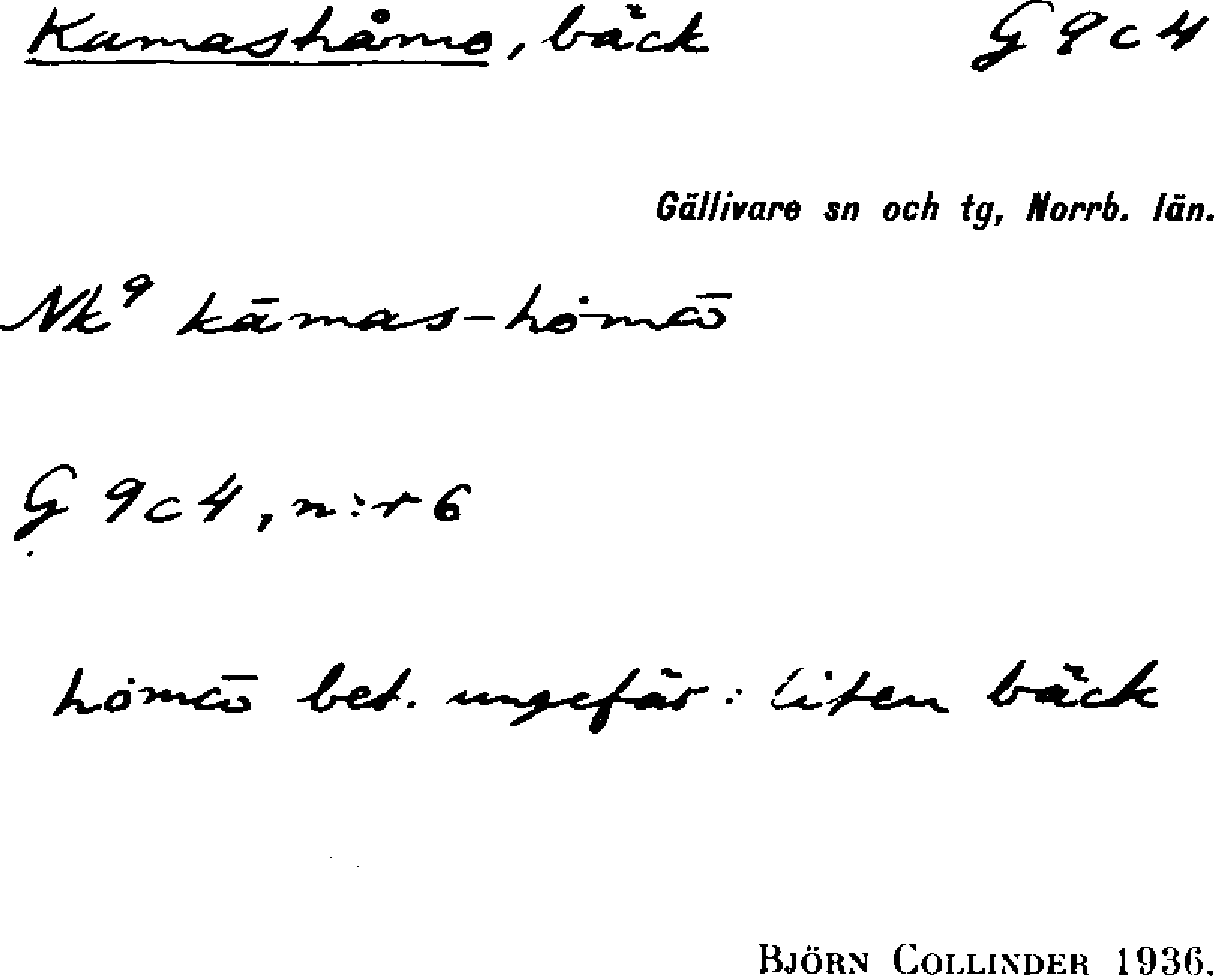 Kamashåmo, bäck G 9 c 4
Gällivare sn och tg, Norrb. län.
Nk⁹ kāmas-hȯmω̄
G 9 c 4, n:r 6
hȯmω̄ bet. ungefär: liten bäck
BJÖRN COLLINDER 1936.